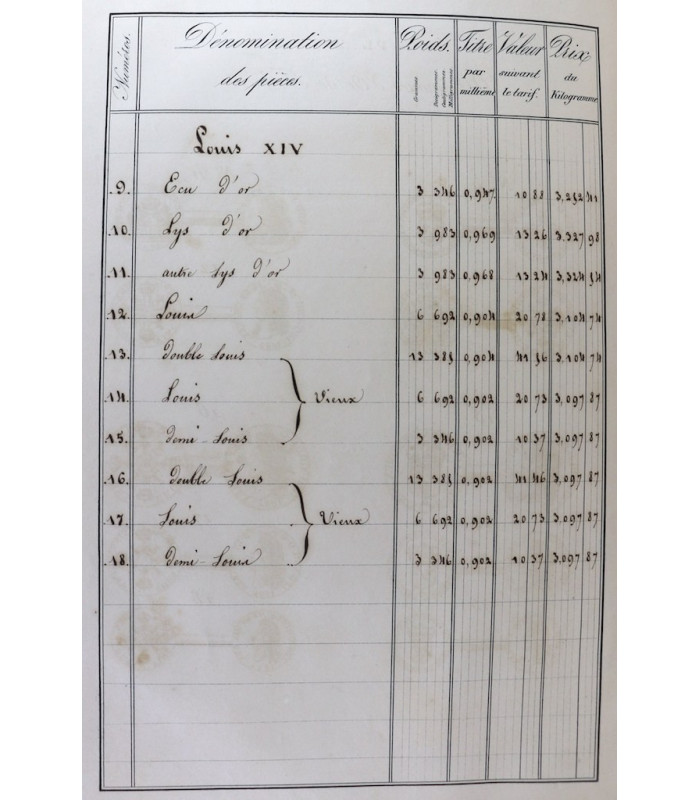 Numéros. Dénomination Poids. Titre Valeur Prix
des pièces. Grammes par suivant du
millième le tarif. Kilogramme
Louis XIV
.9. Ecu d'or 3 346 0,947. 10 88 3,252 41
.10. Lys d'or 3 983 0,969 13 26 3.327 98
.11. autre Lys d'or 3 983 0,968 13 24 3,324 54
.12. Louis 6 692 0,904 20 78 3.104 74
.13. double Louis 13 385 0,904 41 56 3.104 74
.14. Louis Vieux 6 692 0,902 20 73 3,097 87
.15. demi-Louis 3 346 0,902 10 37 3,097 87
.16. double Louis 13 385 0,902 41 46 3.097 87
.17. Louis Vieux 6 692 0,902 20 73 3,097 87
.18. demi-Louis 3 346 0,902 10 37 3,097 87